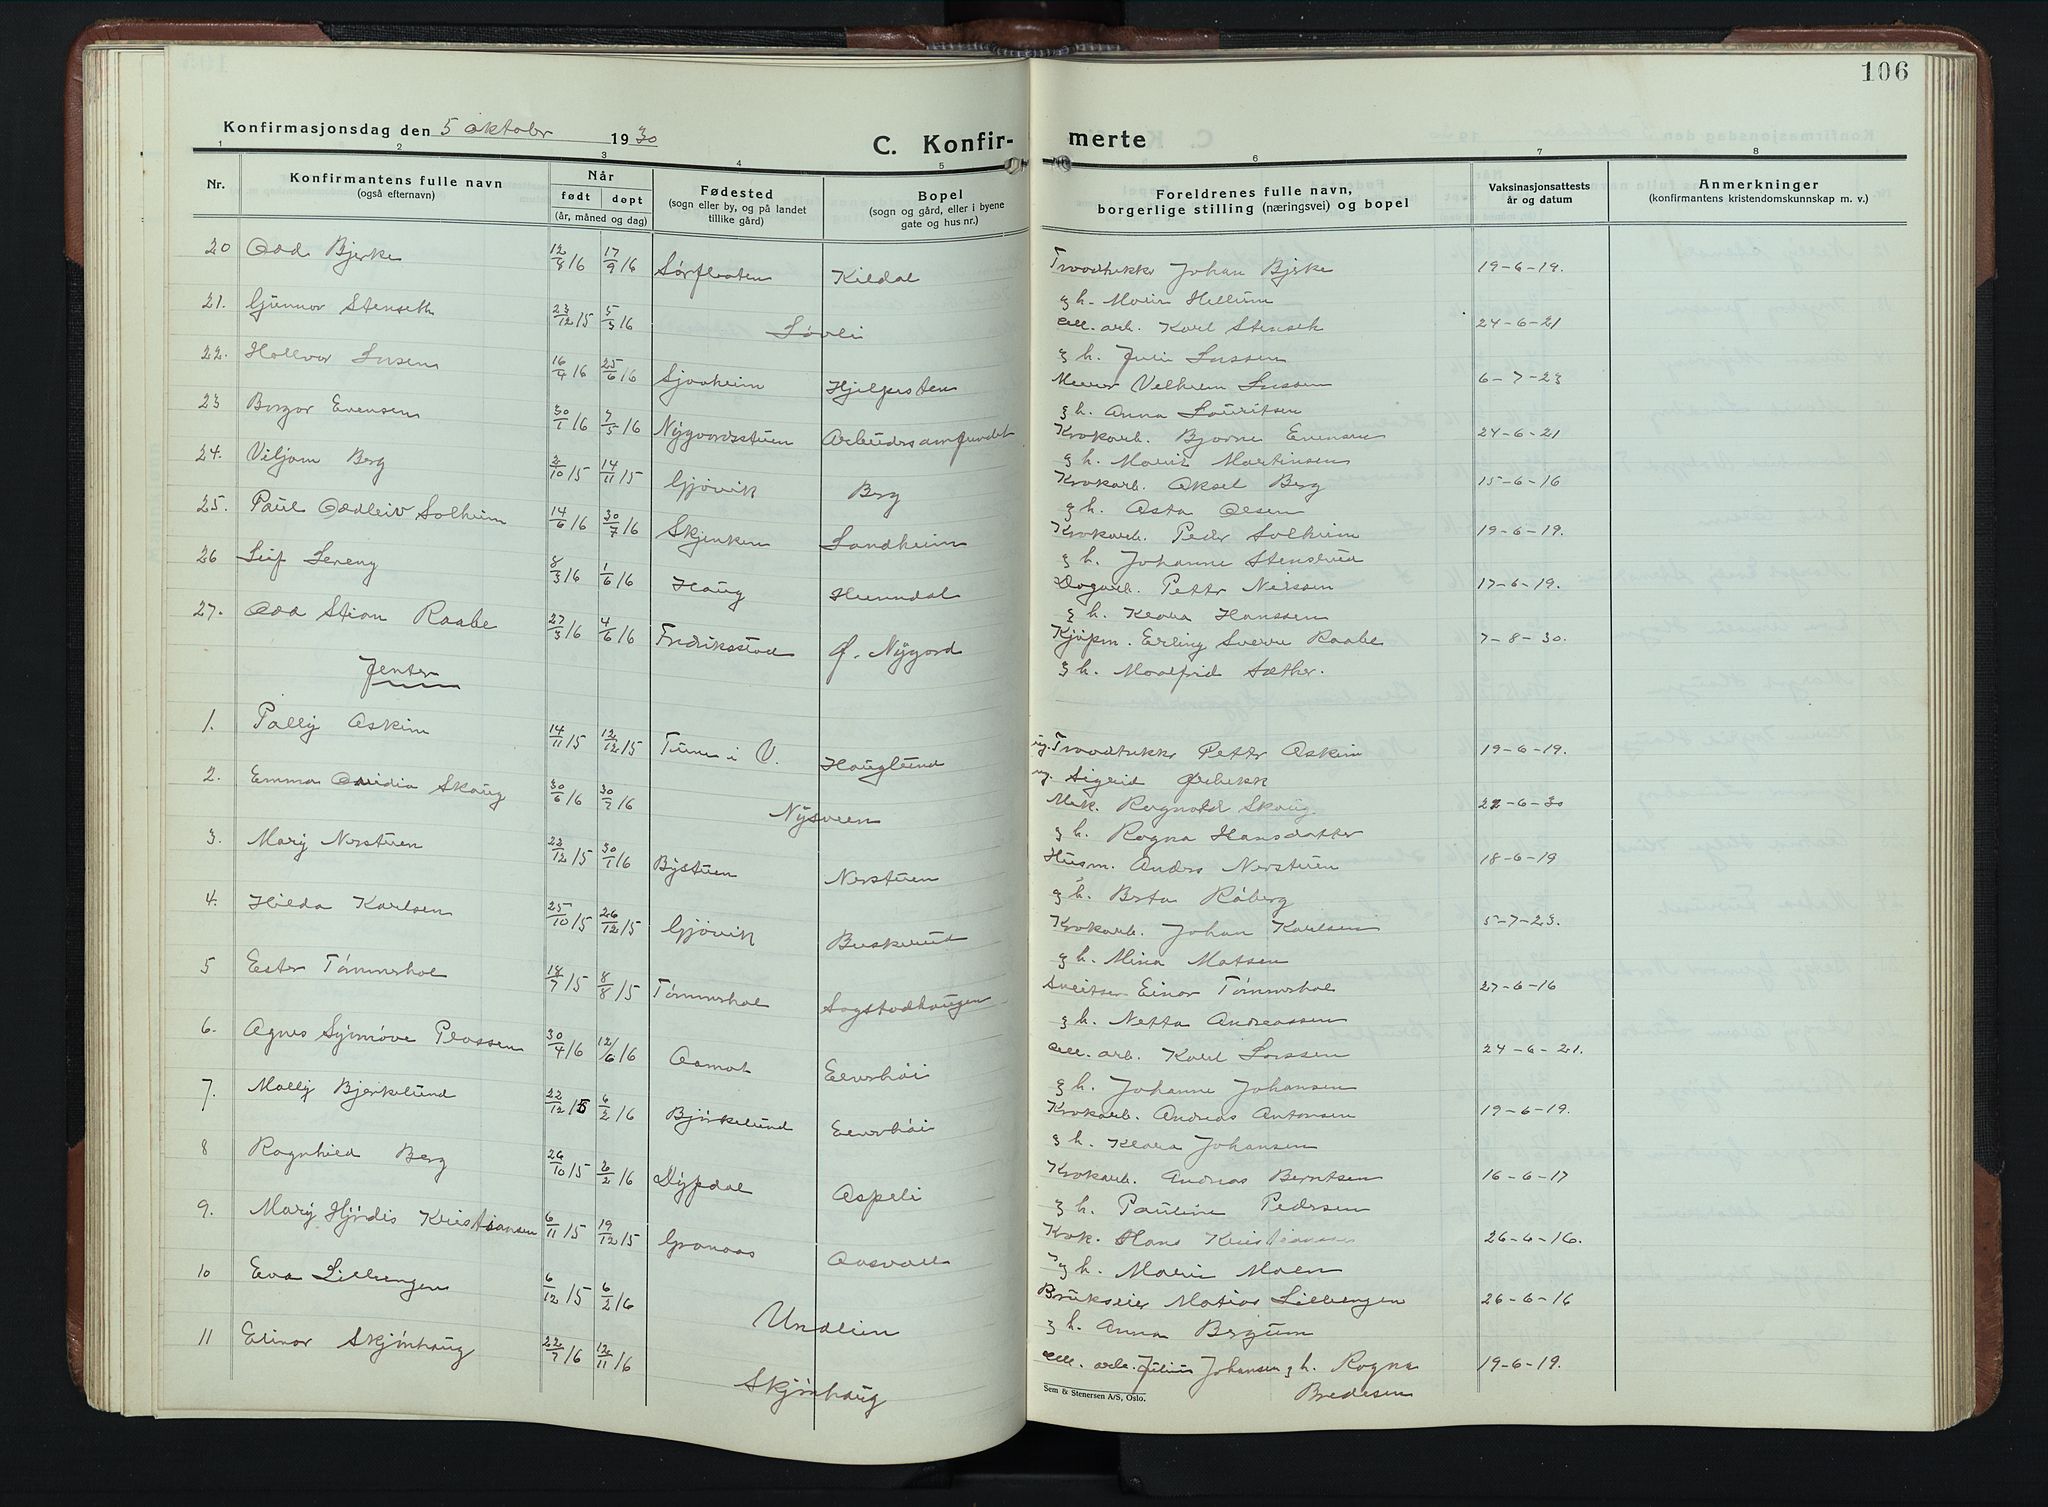 106
Konfirmasjonsdag den 5 oktober 1930
C. Konfir-
merte
1 2 3 4 5 6 7 8
Nr.
Konfirmantens fulle navn
(også efternavn)
Når
født døpt
(år, måned og dag)
Fødested
(sogn eller by, og på landet
tillike gård)
Bopel
(sogn og gård, eller i byene
gate og hus nr.)
Foreldrenes fulle navn,
borgerlige stilling (næringsvei) og bopel
Vaksinasjonsattests
år og datum
Anmerkninger
(konfirmantens kristendomskunnskap m. v.)
20 Odd Bjerke 12/8 16 17/9 16 Sørflaten Kildal Traadtrekker Johan Bjerke 19-6-19.
g h. Marie Hellum
21. Gunnar Stenseth 23/12 15 5/3 16 Løvli Cell. arb. Karl Stenseth 24-6-21
g h. Julie Larssen
22. Hallvor Larsen 16/4 16 25/6 16 Sjøheim Hjelpesten Murer Vilhelm Larssen 6-7-23
g h. Anna Lauritsen
23 Borgar Evensen 30/1 16 7/5 16 Nygaardsstuen Arbeidersamfundet Krokarb. Bjarne Evensen 24-6-21
g h. Marie Martinsen
24. Viljam Berg 2/10 15 14/11 15 Gjøvik Berg Krokarb. Aksel Berg 15-6-16
g h. Asta Olsen
25. Paul Oddleiv Solheim 14/6 16 30/7 16 Skjenken Sandheim Krokarb. Peder Solheim 19-6-19.
g h. Johanne Stenslud
26 Leif Lereng 8/3 16 1/6 16 Haug Hunndal Dagarb. Petter Nilssen 17-6-19.
g h. Klara Hanssen
27. Odd Stian Raabe 27/3 16 4/6 16 Fredriksstad Ø. Nygard Kjøpm. Erling Sverre Raabe 7-8-30.
g h. Maalfrid Sæther.
Jenter
1. Pally Askim 14/11 15 12/12 15 Tune i V. Hauglund ug. Traadtrekker Petter Askim 19-6-19.
ug. Sigrid Ørbekk
2. Emma Ovidia Skaug 30/6 16 30/7 16 Nysveen Mek. Ragnvald Skaug 22-6-30
g h. Ragna Hansdatter
3. Mary Nerstuen 23/12 15 30/1 16 Bystuen Nerstuen Husm. Anders Nerstuen 18-6-19
g h. Berta Røberg
4. Hilda Karlsen 25/10 15 26/12 15 Gjøvik Buskerud Krokarb. Johan Karlsen 5-7-23.
g h. Mina Matsen
5 Ester Tømmerhol 18/7 15 8/8 15 Tømmerhol Sogstadhaugen Sveitser Einar Tømmerhol 27-6-16
g h. Netta Andreassen
6. Agnes Synnøve Plassen 30/4 16 12/6 16 Aamot Elvshøi Cell. arb. Karl Larssen 24-6-21.
g h. Johanne Johansen
7. Mally Bjerkelund 22/12 15 6/2 16 Bjørkelund Elvshøi Krokarb. Andreas Antonsen 19-6-19.
g h. Klara Johansen
8 Ragnhild Berg 26/10 15 6/2 16 Dypdal Aspeli Krokarb. Andreas Berntsen 16-6-17
g h. Pauline Pedersen
9. Mary Hjørdis Kristiansen 6/11 15 19/12 15 Granaas Aasvall Krok. Hans Kristiansen 26-6-16.
g h. Marie Moen
10 Eva Lillengen 6/12 15 6/2 16 Undlien Brukseier Matias Lillengen 26-6-16
g h. Anna Bergum
11 Elinor Skjønhaug 22/7 16 12/11 16 Skjønhaug Cell. arb. Julius Johansen g h. Ragna 19-6-19.
Bredesen
Sem & Stenersen A/S, Oslo.